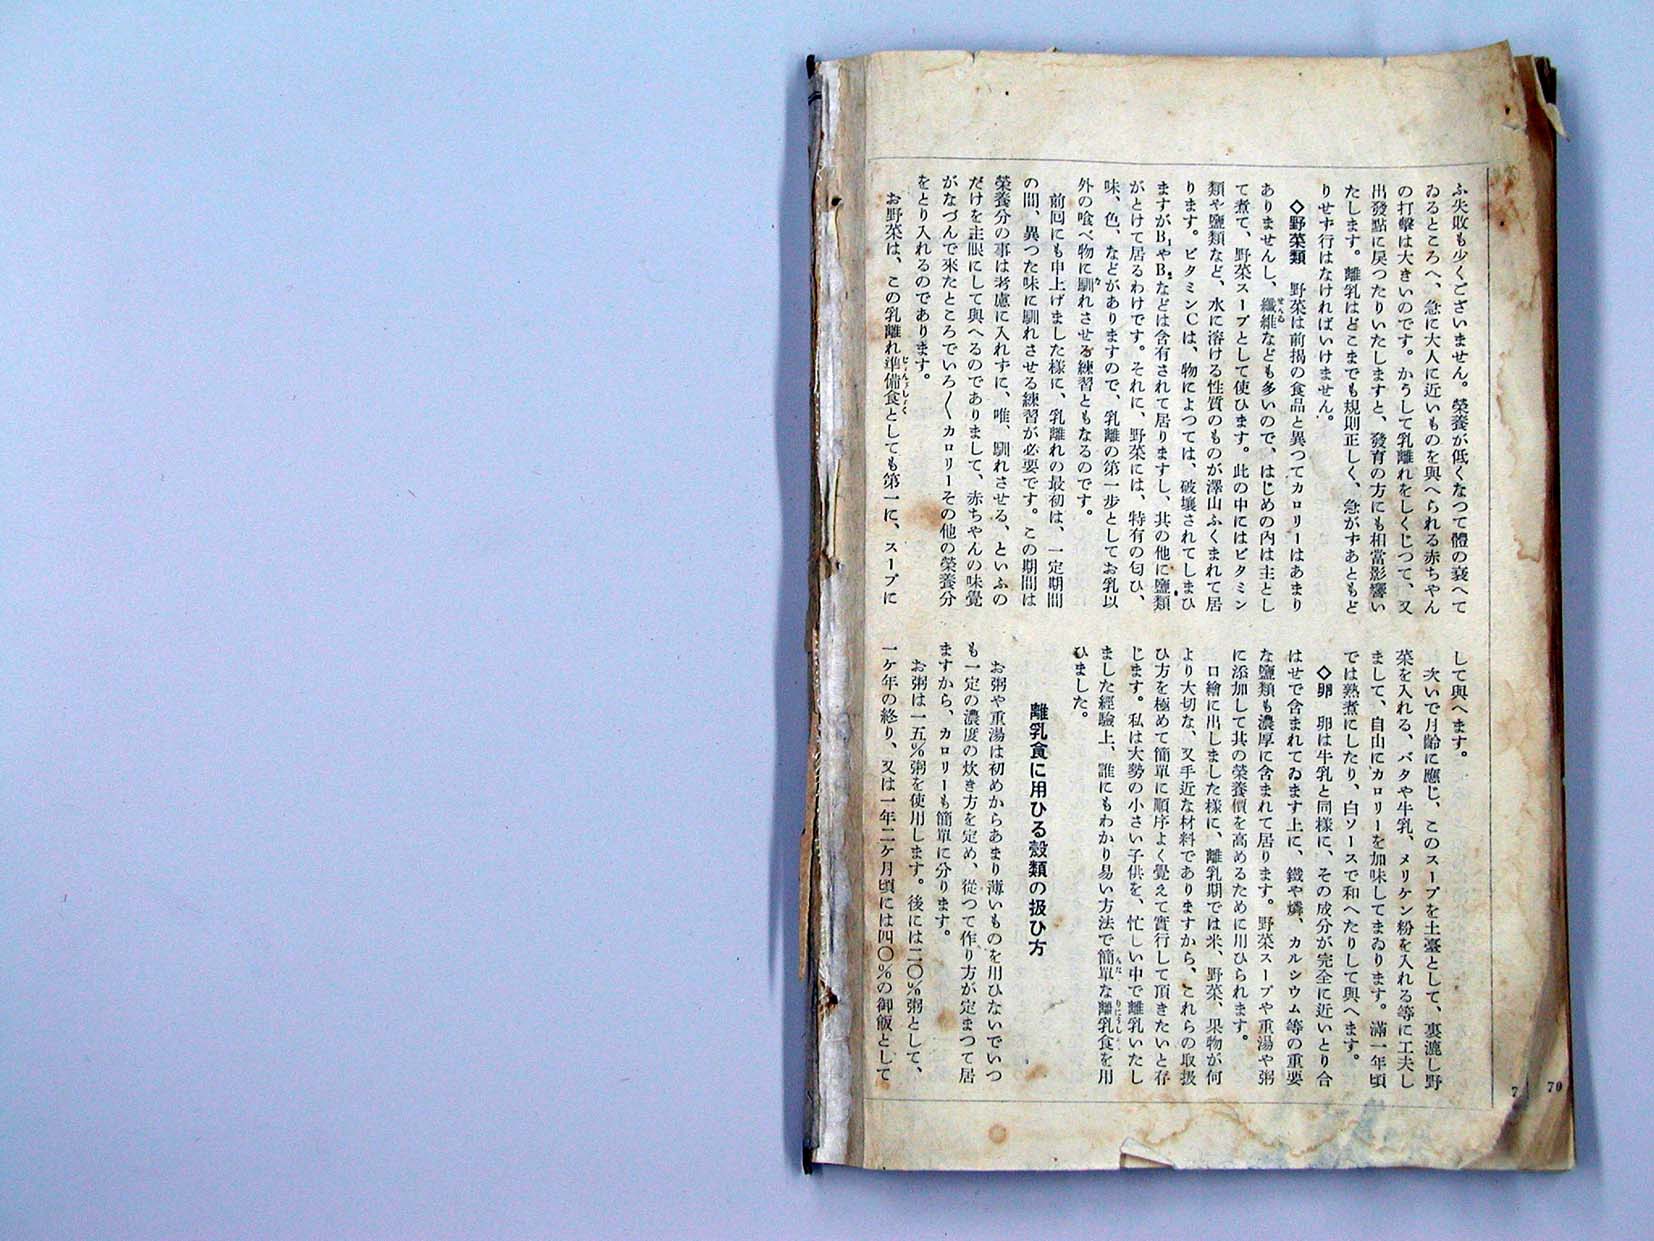 ふ失敗も少くございません。榮養が低くなつて體の衰へて
ゐるところへ、急に大人に近いものを與へられる赤ちやん
の打擊は大きいのです。かうして乳離れをしくじつて、又
出發點に戻つたりいたしますと、發育の方にも相當影響い
たします。離乳はどこまでも規則正しく、急がずあともど
りせず行はなければいけません。
◇野菜類　野菜は前揭の食品と異つてカロリーはあまり
ありませんし、纖維なども多いので、はじめの内は主とし
て煮て、野菜スープとして使ひます。此の中にはビタミン
類や鹽類など、水に溶ける性質のものが澤山ふくまれて居
ります。ビタミンCは、物によつては、破壞されてしまひ
ますがB₁やB₂などは含有されて居りますし、其の他に鹽類
がとけて居るわけです。それに、野菜には、特有の匂ひ、
味、色、などがありますので、乳離の第一步としてお乳以
外の喰べ物に馴れさせる練習ともなるのです。
前回にも申上げました様に、乳離れの最初は、一定期間
の間、異つた味に馴れさせる練習が必要です。この期間は
榮養分の事は考慮に入れずに、唯、馴れさせる、といふの
だけを主眼にして與へるのでありまして、赤ちやんの味覺
がなづんで來たところでいろ〱カロリーその他の榮養分
をとり入れるのであります。
お野菜は、この乳離れ準備食としても第一に、スープに
して與へます。
次いで月齡に應じ、このスープを土臺として、裏漉し野
菜を入れる、バタや牛乳、メリケン粉を入れる等に工夫し
まして、自由にカロリーを加味してまゐります。滿一年頃
では熟煮にしたり、白ソースで和へたりして與へます。
◇卵　卵は牛乳と同様に、その成分が完全に近いとり合
はせで含まれてゐます上に、鐵や燐、カルシウム等の重要
な鹽類も濃厚に含まれて居ります。野菜スープや重湯や粥
に添加して其の榮養價を高めるために用ひられます。
口繪に出しました様に、離乳期では米、野菜、果物が何
より大切な、又手近な材料でありますから、これらの取扱
ひ方を極めて簡單に順序よく覺えて實行して頂きたいと存
じます。私は大勢の小さい子供を、忙しい中で離乳いたし
ました經驗上、誰にもわかり易い方法で簡單な離乳食を用
ひました。
離乳食に用ひる穀類の扱ひ方
お粥や重湯は初めからあまり薄いものを用ひないでいつ
も一定の濃度の炊き方を定め、從つて作り方が定まつて居
ますから、カロリーも簡單に分ります。
お粥は一五％粥を使用します。後には二〇％粥として、
一ケ年の終り、又は一年二ケ月頃には四〇％の御飯として
70